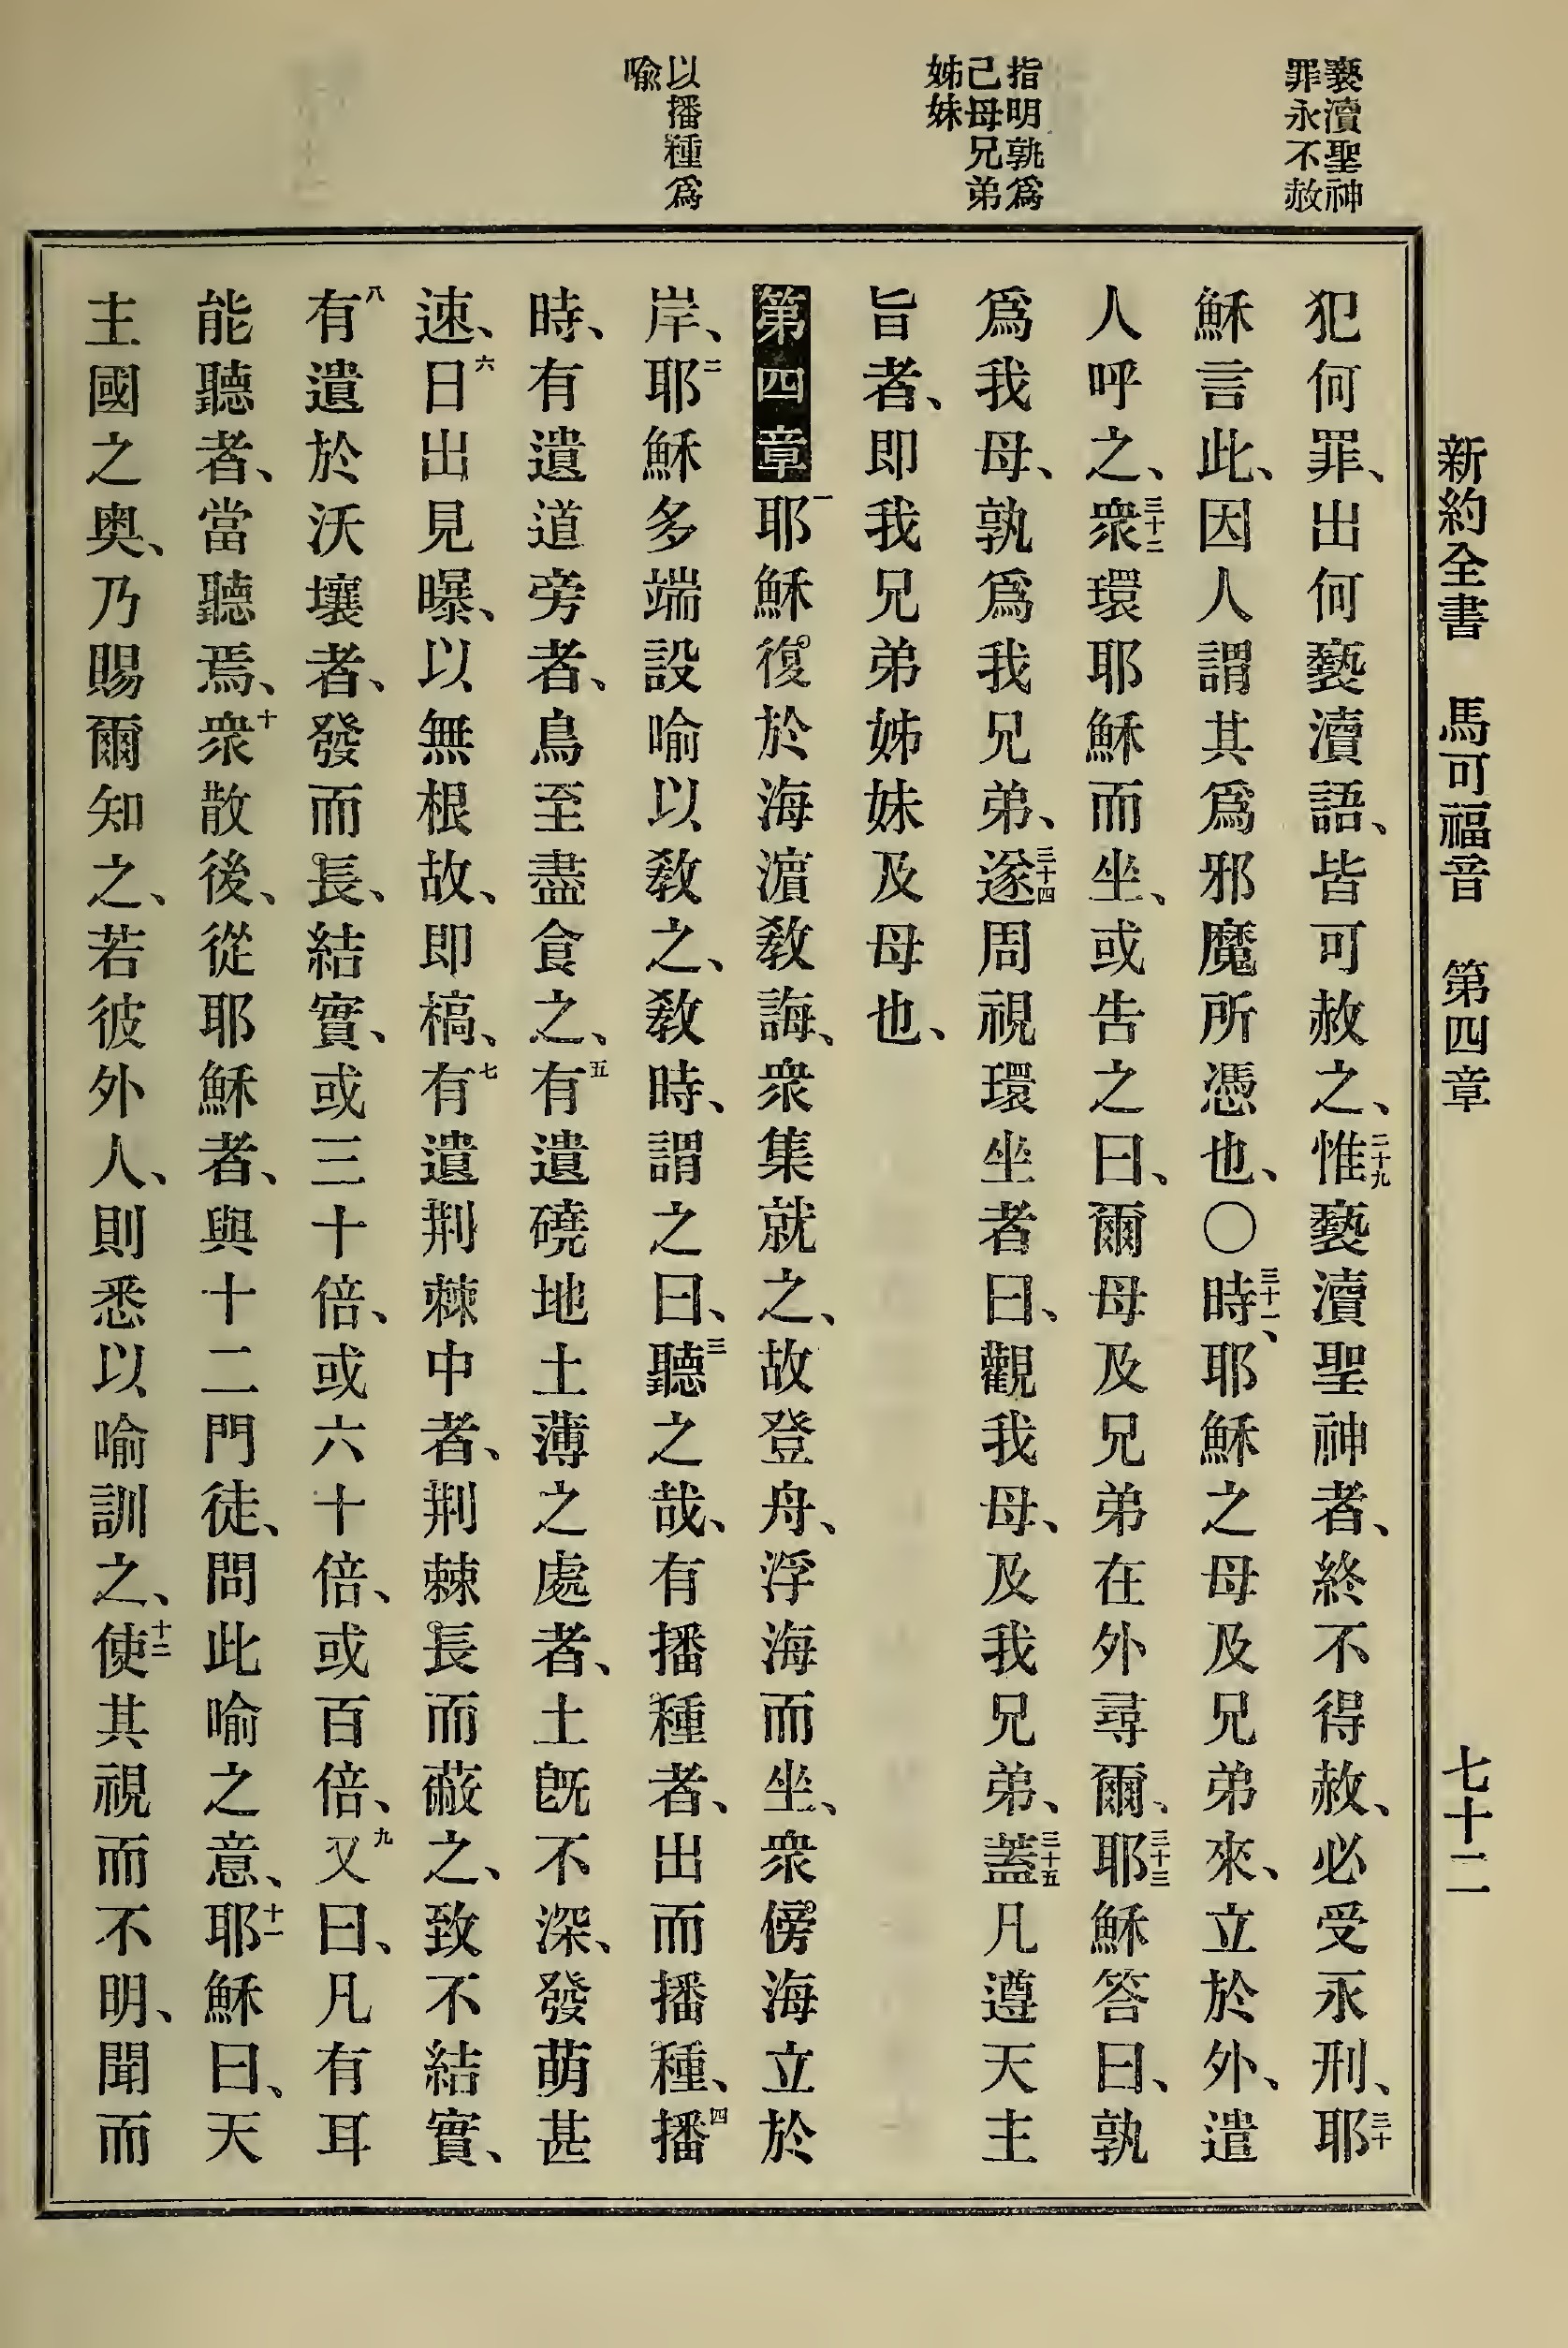 新約全書 馬可福音 第四章 七十二
褻瀆聖神
罪永不赦
指明孰爲
己母兄弟
姊妹
以播種爲
喻
犯何罪、出何褻瀆語、皆可赦之、二十九惟褻瀆聖神者、終不得赦、必受永刑、三十耶
穌言此、因人謂其爲邪魔所憑也、〇三十一時、耶穌之母及兄弟來、立於外、遣
人呼之、三十二衆環耶穌而坐、或告之曰、爾母及兄弟在外尋爾、三十三耶穌答曰、孰
爲我母、孰爲我兄弟、三十四遂周視環坐者曰、觀我母、及我兄弟、三十五蓋凡遵天主
旨者、即我兄弟姊妹及母也、
第四章 一耶穌復於海濵敎誨、衆集就之、故登舟、浮海而坐、衆傍海立於
岸、二耶穌多端設喻以敎之、敎時、謂之曰、三聽之哉、有播種者、出而播種、四播
時、有遺道旁者、鳥至盡食之、五有遺磽地土薄之處者、土旣不深、發萌甚
速、六日出見曝、以無根故、即槁、七有遺荆棘中者、荆棘長而蔽之、致不結實、
八有遺於沃壤者、發而長、結實、或三十倍、或六十倍、或百倍、九又曰、凡有耳
能聽者、當聽焉、十衆散後、從耶穌者、與十二門徒、問此喻之意、十一耶穌曰、天
主國之奧、乃賜爾知之、若彼外人、則悉以喻訓之、十二使其視而不明、聞而